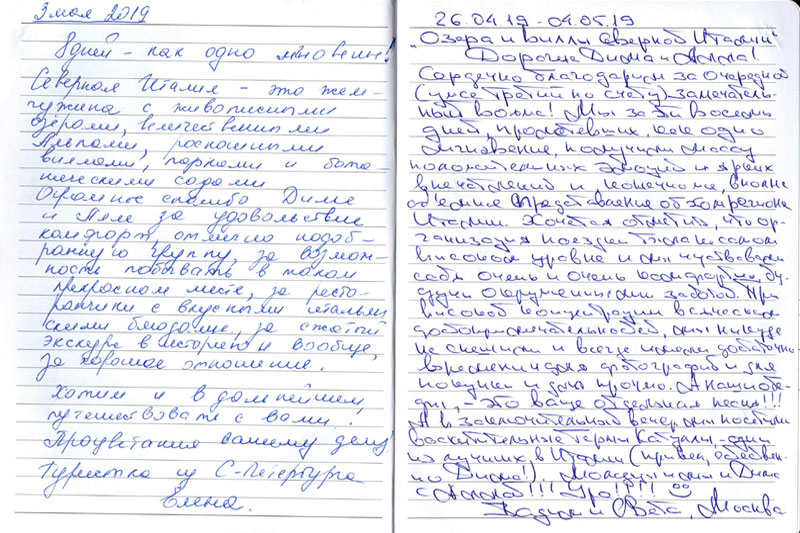 3 мая 2019
8 дней - как одно мгновение!
Северная Италия - это жем-
чужина с живописными
озёрами, величественными
Альпами, роскошными
виллами, парками и бота-
ническими садами
Огромное спасибо Диме
и Алле за удовольствие
комфорт, отлично подоб-
ранную группу, за возмож-
ность побывать в таком
прекрасном месте, за ресто-
ранчики с вкусными итальян
скими блюдами, за сжатый
экскурс в историю и вообще,
за хорошее отношение.
Хотим и в дальнейшем
путешествовать с вами.
Процветания вашему делу!
Туристка из С-Петербурга
Елена.
26.04.19 - 04.05.19
"Озера и виллы Северной Италии"
Дорогие Дима и Алла!
Сердечно благодарим за очередной
(уже третий по счету) замечатель-
ный вояж! Мы за эти восемь
дней, пролетевших, как одно
мгновение, получили массу
положительных эмоций и ярких
впечатлений и конечно же, вполне
объемное представление об этом регионе
Италии. Хочется отметить, что ор-
ганизация поездки была на самом
высоком уровне и мы чувствовали
себя очень и очень комфортно, бу-
дучи окруженными заботой. При
высокой концентрации всяческих
достопримечательностей, мы никуда
не спешили и всегда имели достаточно
времени для фотографий и для
покупок и для прочего. А наши обе-
ды, - это ваще отдельная песня!!!
А в заключительный вечер мы посетили
восхитительные термы - одни
из лучших в Италии (привез, обаятель-
но Дима!). Молодцы и мы и Дима
с Аллой!!! Ура!!!!
Вадим и Вета, Москва